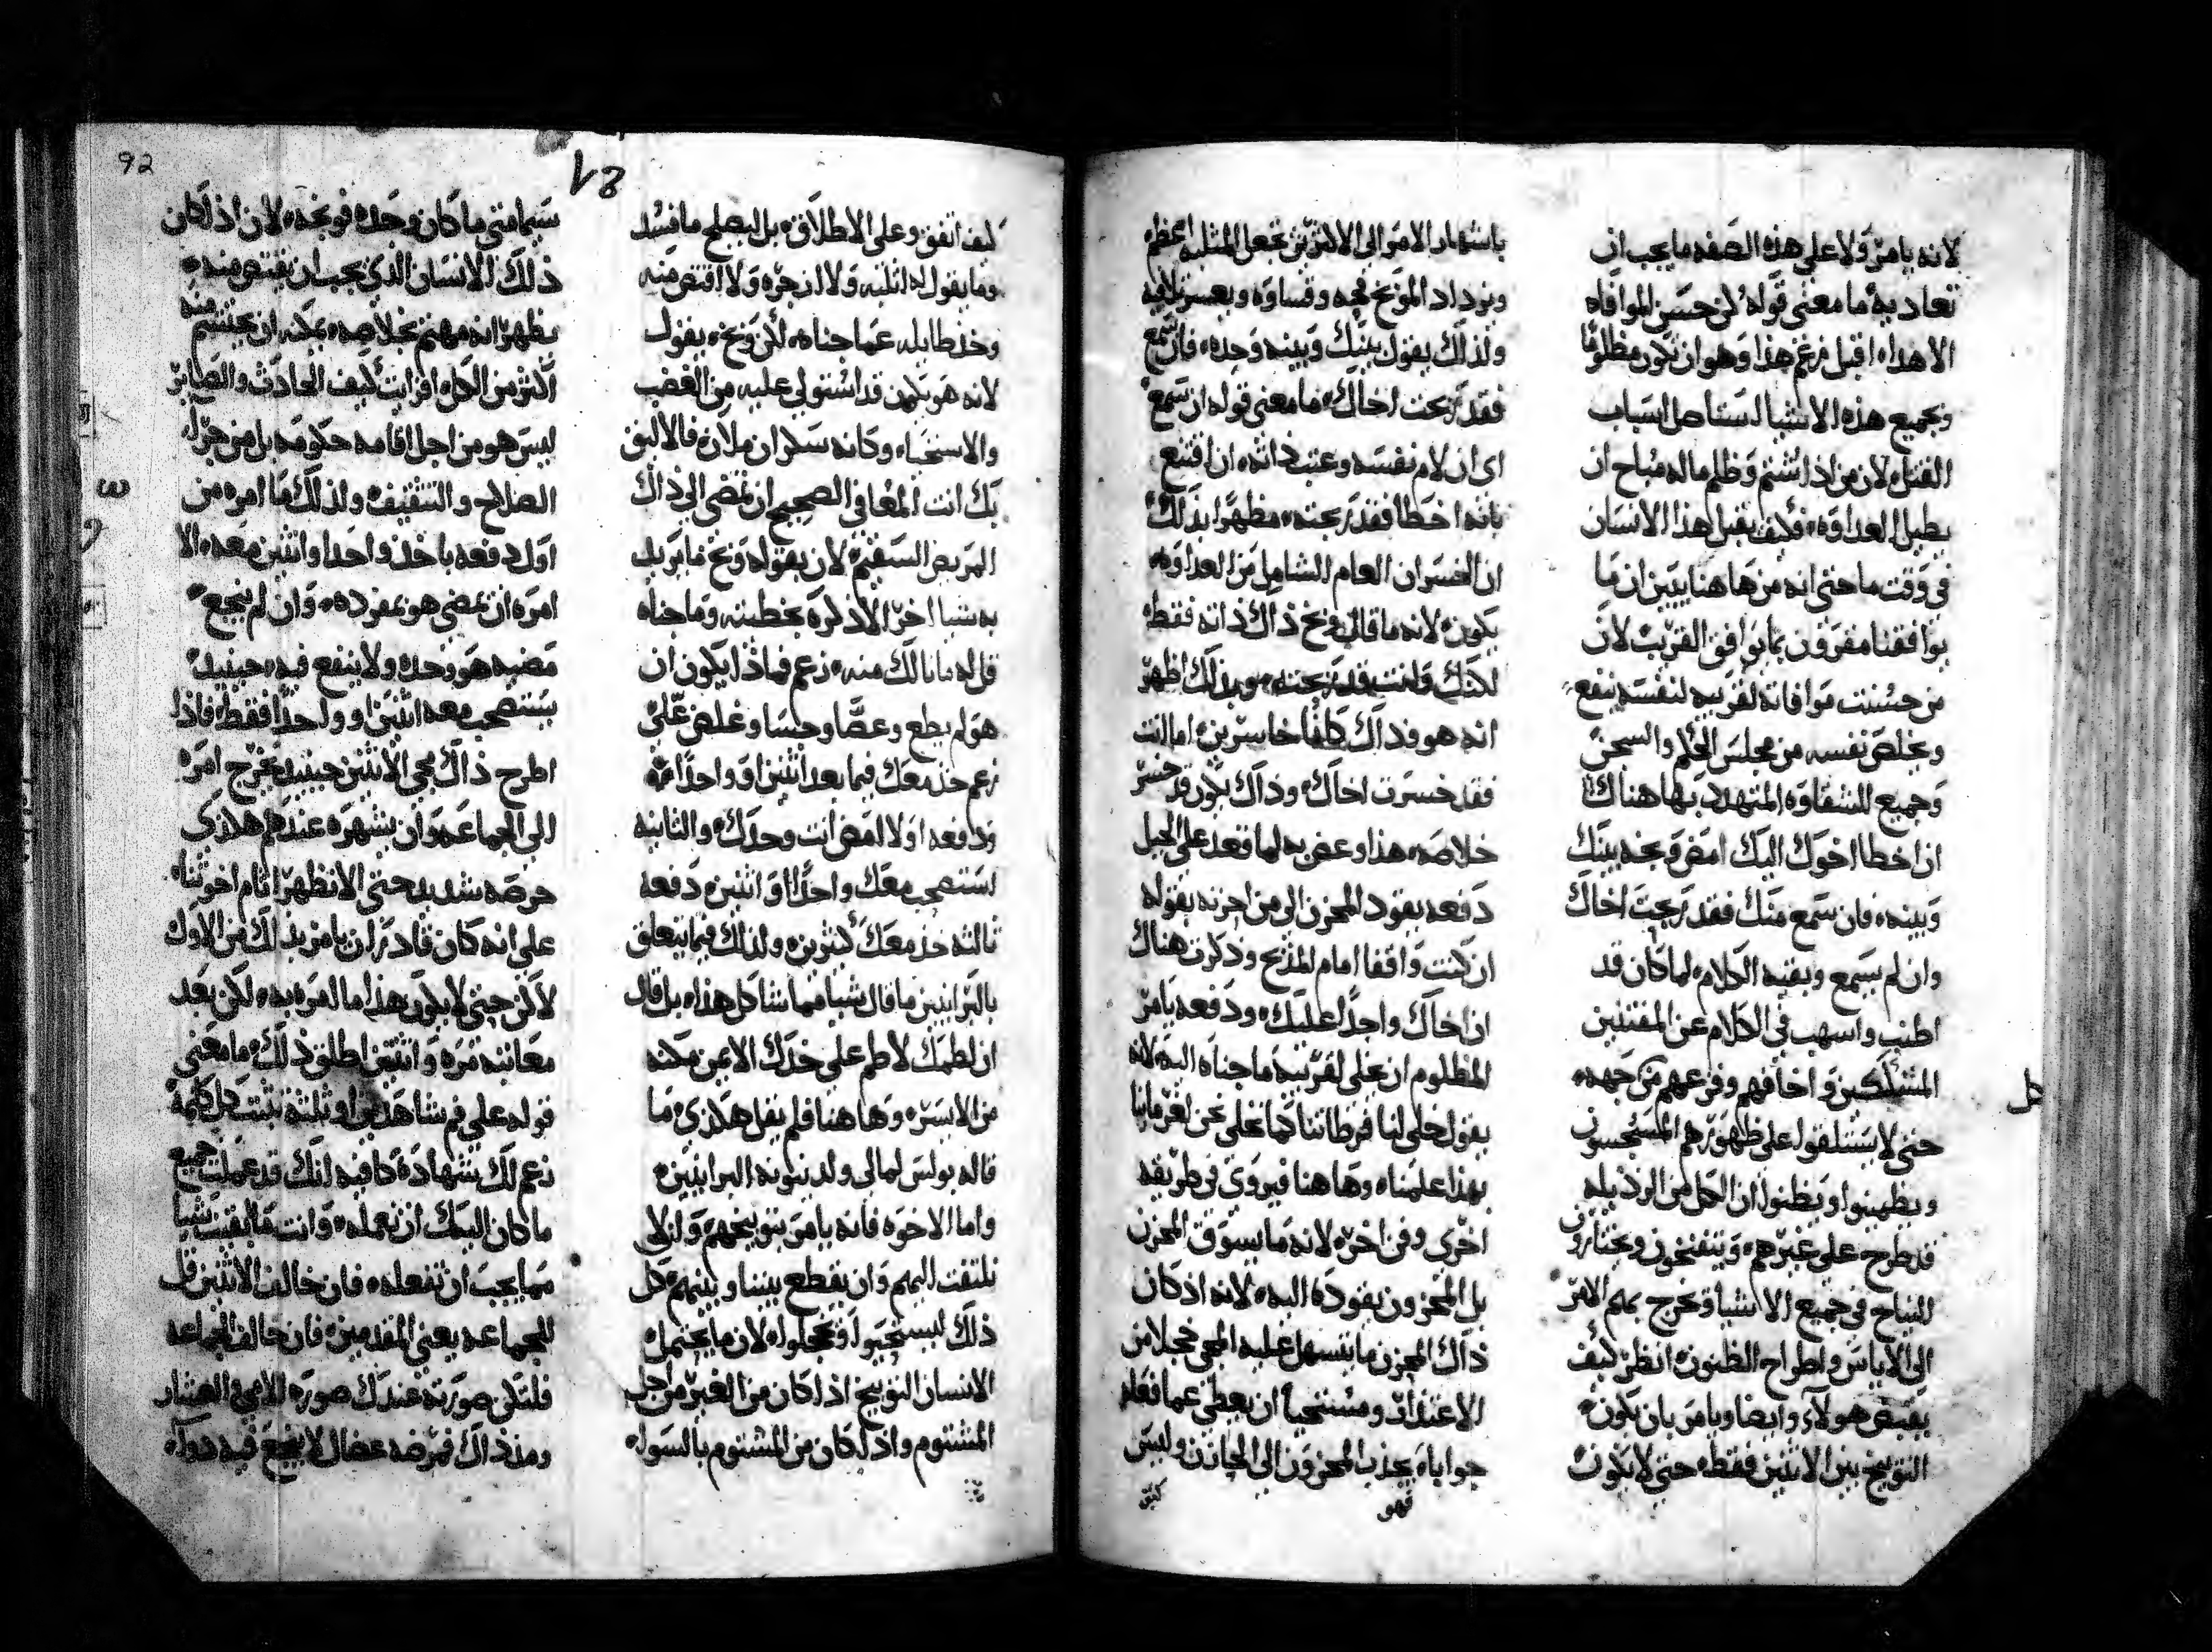 لانه يامر ولا على هذه الصفه ما يجب ان
تعاديه ما معنى قوله كن حسن الموافاه
الاهداء اقبل زعم هذا وهو ان تكون مظلومًا
وبجميع هذه الاشيا استاصل اسباب
القتل لان من اذا شتم وظلم ماله مباح ان
يطيل العداوه فكيف يقبل هذا الانسان
في وقت ما حتى انه من هاهنا يبين ان ما
يوافقنا مقرون بما يوافق القريب لان
من حسنت موافاته لقريبه لنفسه ينفع
ويخلص نفسه من مجلس الحكم والسجن
وجميع الشقاوه المتهدد بها هناك
ان اخطا اخوك اليك امض وبخه بينك
وبينه فان سمع منك فقد ربحت اخاك
وان لم يسمع وبقيه الكلام لما كان قد
اطنب واسهب في الكلام عن المفتنين
المشككين واخافهم وفزعهم من جهه
حتى لا يستلقوا على ظهورهم المسجسون
ويطمينوا ويظنوا ان الكل من الرذيله
قد طرح على غيرهم وينتفخون ويختاروا
النياح في جميع الاشيا وتخرج بهم الامر
الى الاياس واطراح الظنون انظر كيف
يقبض هولاء وايضا ويامر بان يكون
التوبيخ بين الاثنين فقط حتى لا يكون
باشهار الامر الى الاكثرين تجعل المثلبه اعظم
ويزداد الموبخ قحه وقساوه ويعسر تلافيه
ولذلك يقول بينك وبينه وحده فان سمع
فقد ربحت اخاك ما معنى قوله ان سمع
اى ان لام نفسه وعتب ذاته ان اقتنع
بانه اخطا فقد ربحته مظهرًا بذلك
ان الخسران العام الشامل من العداوه
يكون لانه ما قال ربح ذاك ذاته فقط
لكنك وانت قد ربحته وبذلك اظهر
انه هو وذاك كانا خاسرين اما انت
فقد خسرت اخاك وذاك يكون قد خسر
خلاصه هذا وعض به لما قعد على الجبل
دفعه يقود المحزن الى من احزنه بقوله
ان كنت واقفا امام المذبح وذكرت هناك
ان اخاك واجدًا عليك ودفعه يامر
المظلوم ان يخلي لقريبه ما جناه اليه لانه
يقول خلى لنا فرطاتنا كما نخلي نحن لغرماينا
بهذا علمناه وهاهنا فيروي في طريقه
اخرى وفن اخر لانه ما يسوق المحزن
بل المحزون يقوده اليه لانه اذ كان
ذاك المحزن ما يتسهل عليه المجي خجلا من
الاعتذار ومستحيا ان يعطي عما فعله
جوابا يجذب المحزون الى الجاني وليس
كيف اتفق وعلى الاطلاق بل ليصلح ما فسد
وما يقول له اثلبه ولا ازجره ولا اقتص منه
وخذ طايله عما جناه لكن وبخه يقول
لانه هو يكون قد استولي عليه من الغضب
والاستحياء وكانه سكران ملان فالاليق
بك انت المعافي الصحيح ان تمضي الى ذاك
المريض السقيم لان بقوله وبخ ما يريد
به شيا اخر الا ذكره بخطيته وما جناه
قل له ما نالك منه زعم فماذا يكون ان
هو لم يطع وعصا وجسا وغلض علي
زعم خذ معك فيما بعد اثنين او واحدًا
ودفعه اولا امض انت وحدك والثانيه
استصحب معك واحدًا او اثنين دفعه
ثالثه خذ معك كثيرين ولذلك فيما يتعلق
بالبرانيين ما قال شيا مما شاكل هذا بل قال
ان لطمك لاطم على خدك الايمن مكنه
من الايسر وهاهنا فلم يقل هكذي ما
قاله بولس لمالي ولدينونه البرانيين
واما الاخوه فانه يامر بتوبيخهم وان لا
نلتفت اليهم وان نقطع بيننا وبينهم كل
ذلك ليستحيوا ويخجلوا لان ما يحتمل
الانسان التوبيخ اذا كان من الغير من اجل
المشتوم واذا كان من المشتوم بالسواء
سيما متى ما كان وحده فوبخه لان اذا كان
ذلك الانسان الذي يجب ان يقتص منه
يظهر انه مهتم بخلاصه يمكنه ان يحتشم منه
اكثر من الكل افرايت كيف الحادث والصاير
ليس هو من اجل اقامه حكومه بل من جرا
الصلاح والتثقيف ولذلك ما امره من
اول دفعه ياخذ واحدا واثنين معه الا
امره ان يمضي هو بمفرده وان لم ينجع
مضيه هو وحده ولا ينتفع فيه حينيذ
يستصحب معه اثنين او واحدًا فقط فاذا
اطرح ذاك مجي الاثنين حينيذ يخرج امره
الى الجماعه وان يشهره عندهم هكذي
حرصه شديد حتى الا نظهر اثام اخوتنا
على انه كان قادرًا ان يامر بذلك من الاول
لاكن حتى لا يكون هذا ما امره به لكن بعد
معاتبته مره واثنتين اطلق ذلك ما معنى
قوله على فم شاهدين او ثلثة يثبت كل كلمة
زعم لك شهادة كافيه انك قد عملت جميع
ما كان اليك ان تعمله وانت ما بقيت شيا
مما يجب ان تفعله فان خالف الاثنين قل
للجماعه يعني المقدمين فان خالف الجماعه
فلتكن صورته عندك صوره الامي والعشار
ومنذ ذاك فمرضه عضال لا ينجع فيه دواء
فهو
كيف
92